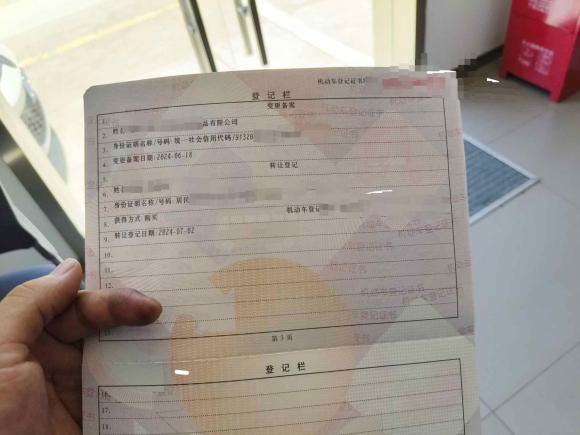 机动车登记证书
登记栏
1. 变更备案
2. 品有限公司
3. 身份证明名称/号码 统一社会信用代码/91320
4. 变更备案日期 2024-06-18
5. 转让登记
6. 姓
7. 身份证明名称/号码 居民
8. 获得方式 购买 机动车登记
9. 转让登记日期 2024-07-02
10.
11.
12.
第 3 页
登记栏
16.
17.
18.